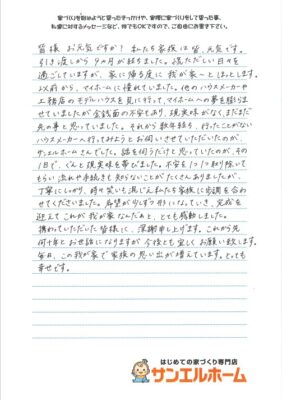 家づくりを始めようと思ったきっかけや、実際に家づくりをして思った事、
私達に対するメッセージなど、何でもOKですので、ご自由にお書き下さい。
皆様 お元気ですか? 私たち家族は皆、元気です。
引き渡しから9ヵ月が経ちました。慌ただしい日々を
過ごしていますが、家に帰る度に我が家〜とほっとします。
以前から、マイホームに憧れていました。他のハウスメーカーや
工務店のモデルハウスを見に行って、マイホームへの夢を膨らま
せていましたが金銭面の不安もあり、現実味がなく、まだまだ
先の事と思っていました。それから数年経ち、行ったことがない
ハウスメーカーへ行ってみようとお伺いさせていただいたのが、
サンエルホームさんでした。話を伺うだけと思っていたのが、その
1日で、ぐんと現実味を帯びました。不安を1つ1つ取り除いて
もらい流れや手続きも知らないことがたくさんありましたが、
丁寧にしっかり、時々笑いも混じえ私たち家族に歩調を合わ
せてくださいました。希望が少しずつ形になっていき、完成を
迎えてこれが我が家なんだぁと、とても感動しました。
携わっていただいた皆様に、深謝申し上げます。これから先
何十年とお世話になりますが今後とも宜しくお願い致します。
毎日、この我が家で家族の思い出が増えています。とっても
幸せです。
はじめての家づくり専門店
サンエルホーム